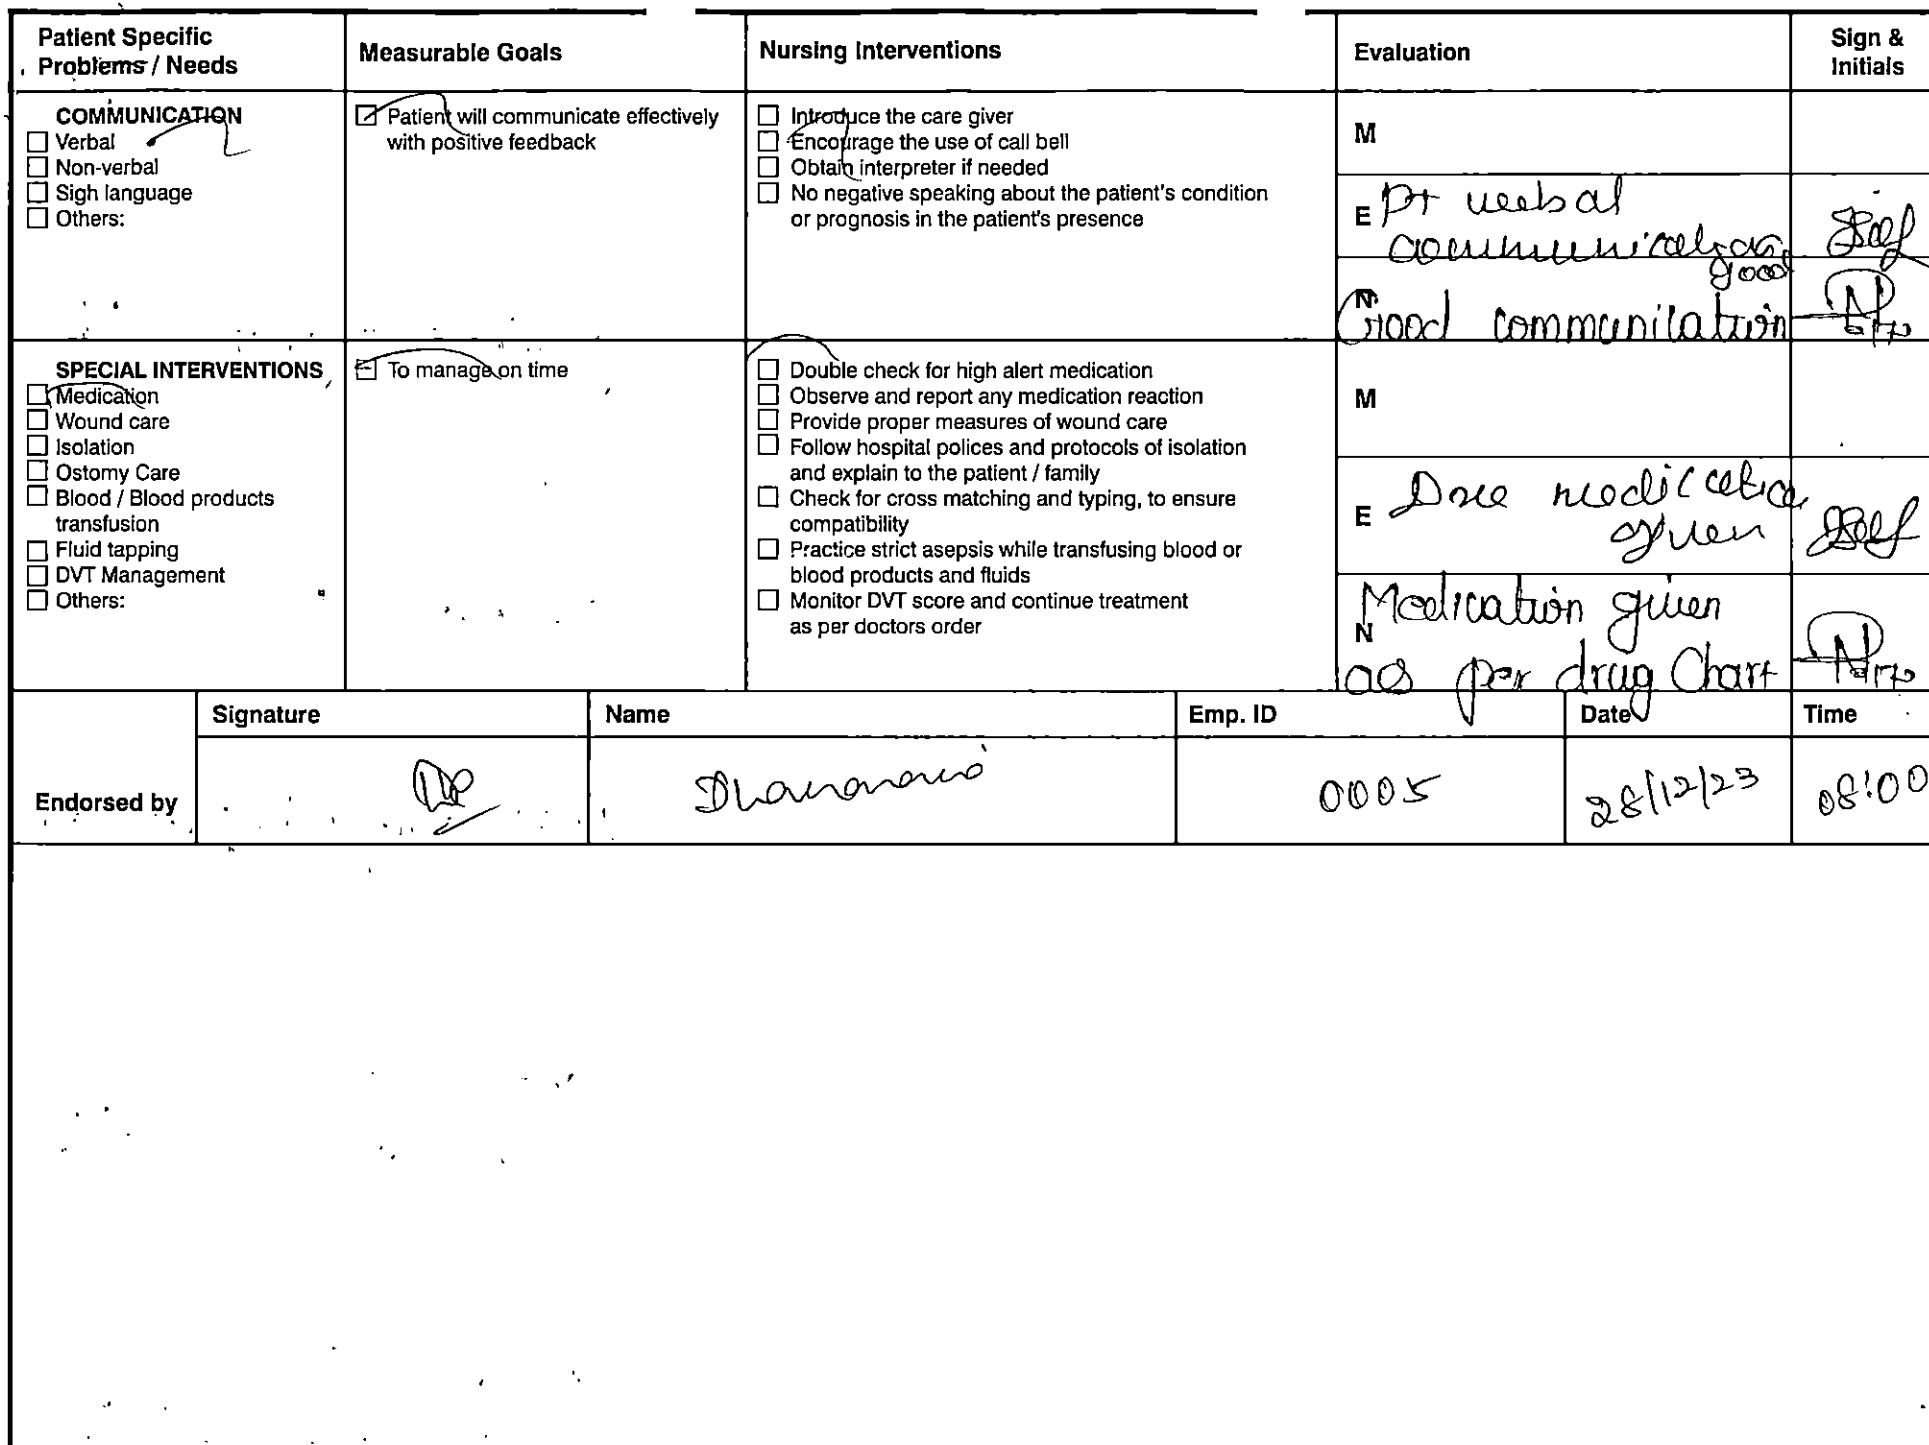 Patient Specific
Problems / Needs
Measurable Goals
Nursing Interventions
Evaluation
Sign &
Initials
COMMUNICATION
☐ Verbal
☐ Non-verbal
☐ Sigh language
☐ Others:
☑ Patient will communicate effectively
with positive feedback
☐ Introduce the care giver
☐ Encourage the use of call bell
☐ Obtain interpreter if needed
☐ No negative speaking about the patient's condition
or prognosis in the patient's presence
M
E Pt verbal
communication
good
N
Good communication
SPECIAL INTERVENTIONS
☐ Medication
☐ Wound care
☐ Isolation
☐ Ostomy Care
☐ Blood / Blood products
transfusion
☐ Fluid tapping
☐ DVT Management
☐ Others:
☐ To manage on time
☐ Double check for high alert medication
☐ Observe and report any medication reaction
☐ Provide proper measures of wound care
☐ Follow hospital polices and protocols of isolation
and explain to the patient / family
☐ Check for cross matching and typing, to ensure
compatibility
☐ Practice strict asepsis while transfusing blood or
blood products and fluids
☐ Monitor DVT score and continue treatment
as per doctors order
M
E medication
given
Medication given
N
as per drug Chart
Signature
Name
Emp. ID
Date
Time
Endorsed by
0005
28/12/23
08:00